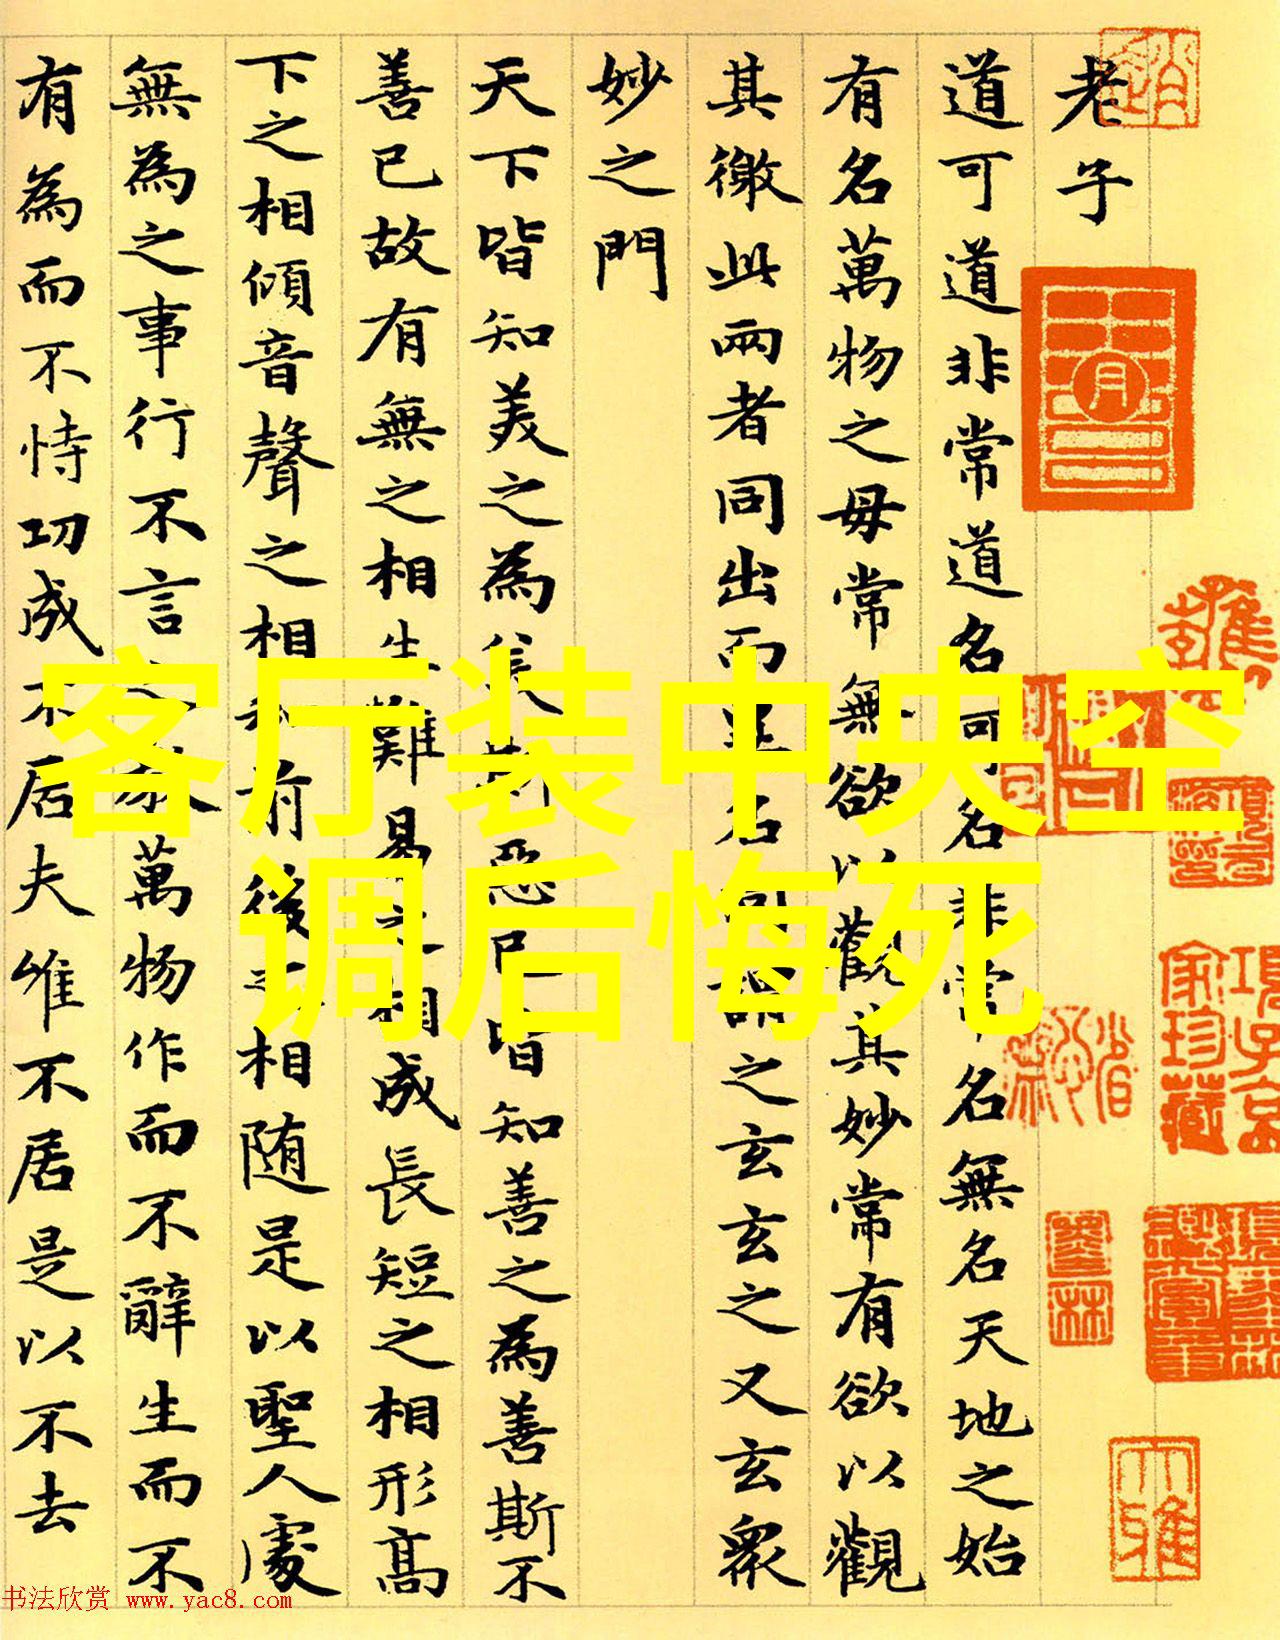 老子
道可道非常道名可名非常名無名天地之始
有名萬物之母常無欲以觀其妙常有欲以觀
其徼此兩者同出而異名同謂之玄玄之又玄衆
妙之門
天下皆知美之為美斯惡已皆知善之為善斯不
善已故有無之相生難易之相成長短之相形髙
下之相傾音聲之相和前後之相随是以聖人處
無為之事行不言之教萬物作而不辭生而不
有為而不恃功成不居夫唯不居是以不去
客厅装中央空
调后悔死
項子京
家珍藏
书法欣赏 www.yac8.com